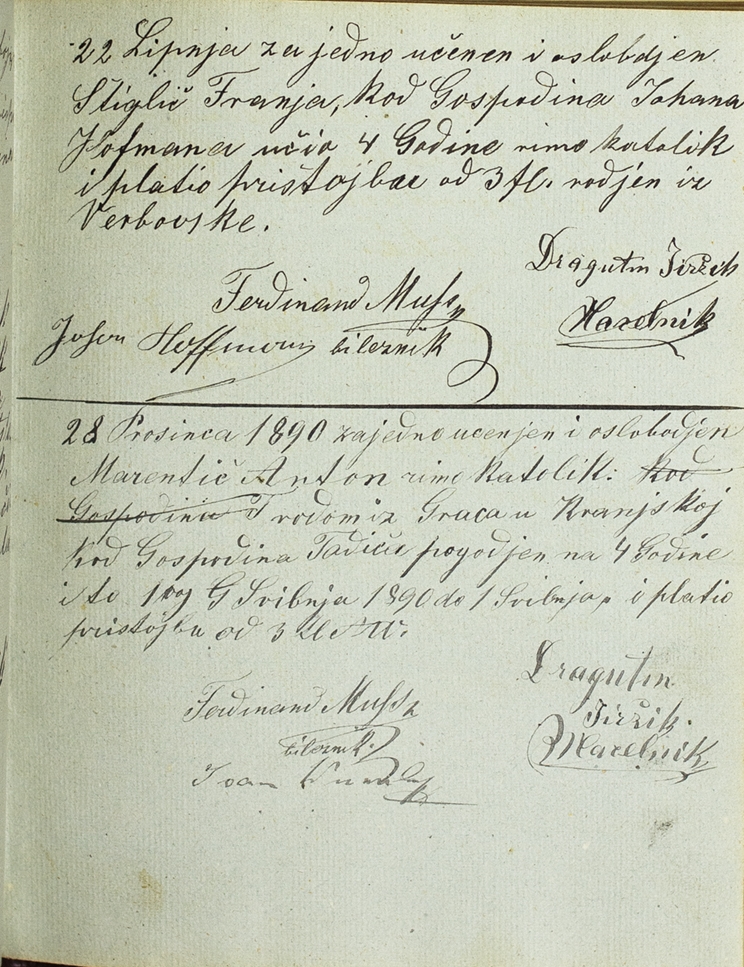 22 Lipnja za jedno učenen i oslobdjen
Stiglić Franja, kod Gospodina Johana
Hofmana učio 4 Godine rimo katolik
i platio pristojbae od 3 fl. rodjen iz
Verbovske.
Dragutin Jiržik
Ferdinand Mussz
Hacelnik
Johan Hoffmann bileznik
28 Prosinca 1890 zajedno ucenjen i oslobodjen
Marentić Anton rimo katolik: kod
Gospodina T rodom iz Graca u Kranjskoj
kod Gospodina Tadića pogodjen na 4 Godine
i to 1 Svibnja 1890 do 1 Svibnja i platio
pristojbu od 3
Dragutin
Ferdinand Mussz
Jiržik.
bileznik.
Hacelnik
Ivan